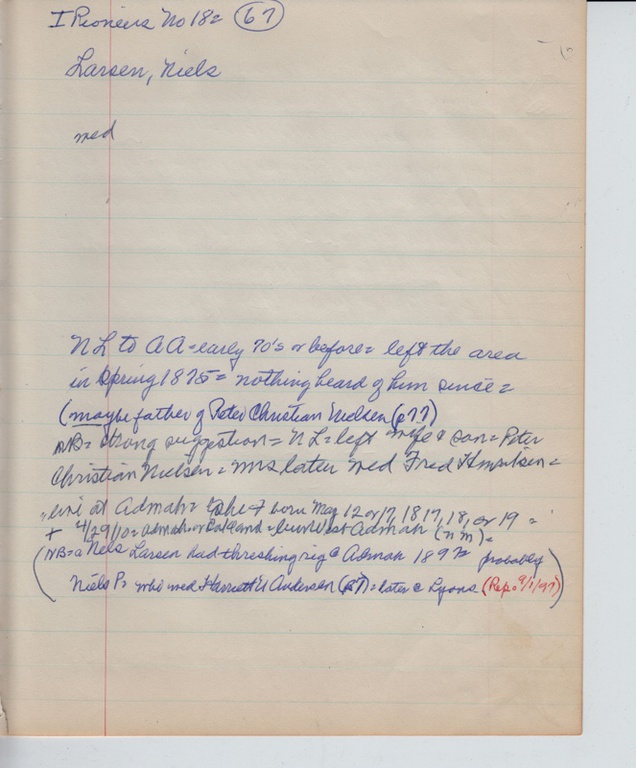 I Pioneers No 18= 67
Larsen, Niels
med
N L to A A = early 70's or before = left the area
in Spring 1875 = nothing heard of him since =
(maybe father of Peter Christian Nielsen (p77)
NB = strong suggestion = N L = left wife & son = Peter
Christian Nielsen = Mrs later med Fred =
live at Admah = she born May 12 or 17, 1817, 18, or 19 =
+ 4/29/10 = Admah or Oakland = buried at Admah (nm) =
(NB = a Nels Larsen had threshing rig @ Admah 189 probably
Niels P = who med Harriett Andersen = later @ Lyons (Rep. 9/1/97)